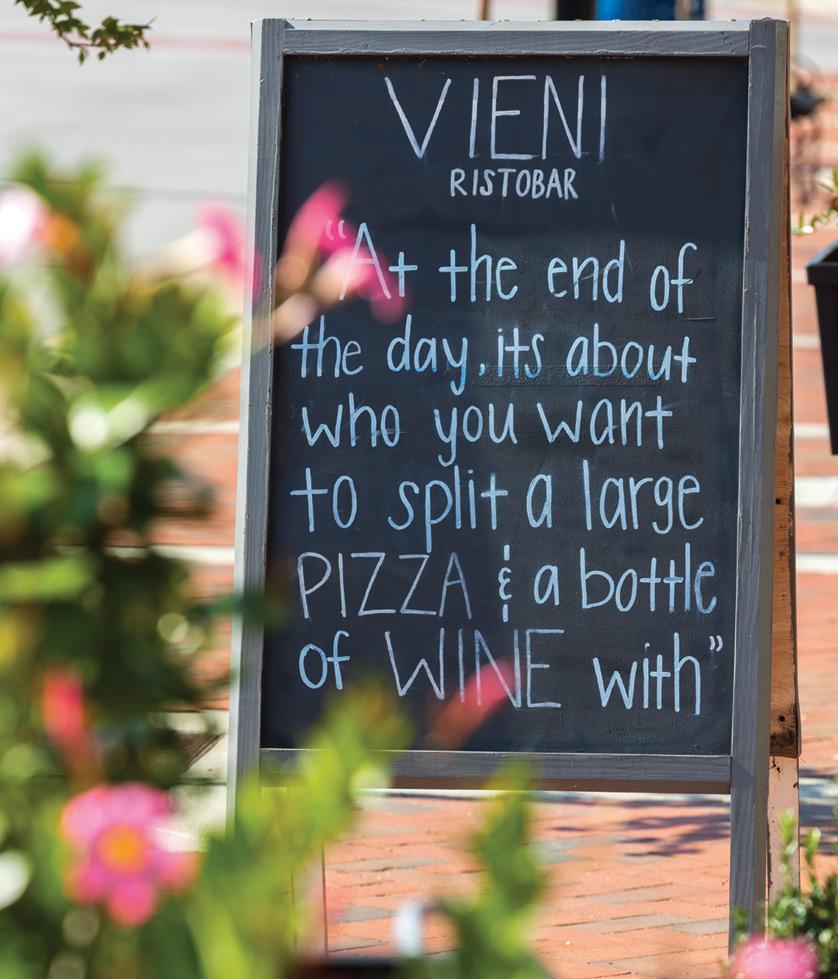 VIENI
RISTOBAR
"At the end of
the day, its about
who you want
to split a large
PIZZA & a bottle
of WINE with"